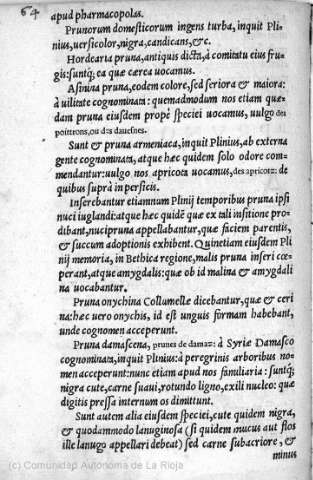 64
apud pharmacopolas.
Prunorum domesticorum ingens turba, inquit Pli-
nius, uersicolor, nigra, candicans, &c.
Hordearia pruna, antiquis dicta, à comitatu eius fru-
gis: suntq́; ea quæ cærea uocamus.
Asinina pruna, eodem colore, sed seriora & maiora:
à uilitate cognominata: quemadmodum nos etiam quæ-
dam pruna eiusdem propè speciei uocamus, uulgo des
poittrons, ou des dauesnes.
Sunt & pruna armeniaca, inquit Plinius, ab externa
gente cognominata, atque hæc quidem solo odore com-
mendantur: uulgo nos apricota uocamus, des apricotz: de
quibus suprà in persicis.
Inserebantur etiamnum Plinij temporibus pruna ipsi
nuci iuglandi: atque hæc quidē quæ ex tali insitione pro-
dibant, nuci pruna appellabantur, quæ faciem parentis,
& succum adoptionis exhibent. Quinetiam eiusdem Pli
nij memoria, in Bethica regione, malis pruna inseri cœ-
perant, atque amygdalis: quæ ob id malina & amygdali
na uocabantur.
Pruna onychina Collumellæ dicebantur, quæ & ceri
na: hæc uero onychis, id est unguis formam habebant,
unde cognomen acceperunt.
Pruna damascena, prunes de damaz: à Syriæ Damasco
cognominata, inquit Plinius: à peregrinis arboribus no-
men acceperunt: nunc etiam apud nos familiaria: suntq́;
nigra cute, carne suaui, rotundo ligno, exili nucleo: quæ
digitis pressa internum os dimittunt.
Sunt autem alia eiusdem speciei, cute quidem nigra,
& quodammodo lanuginosa (si quidem mucus aut flos
ille lanugo appellari debeat) sed carne subacriore, &
minus
(c) Comunidad Autónoma de La Rioja